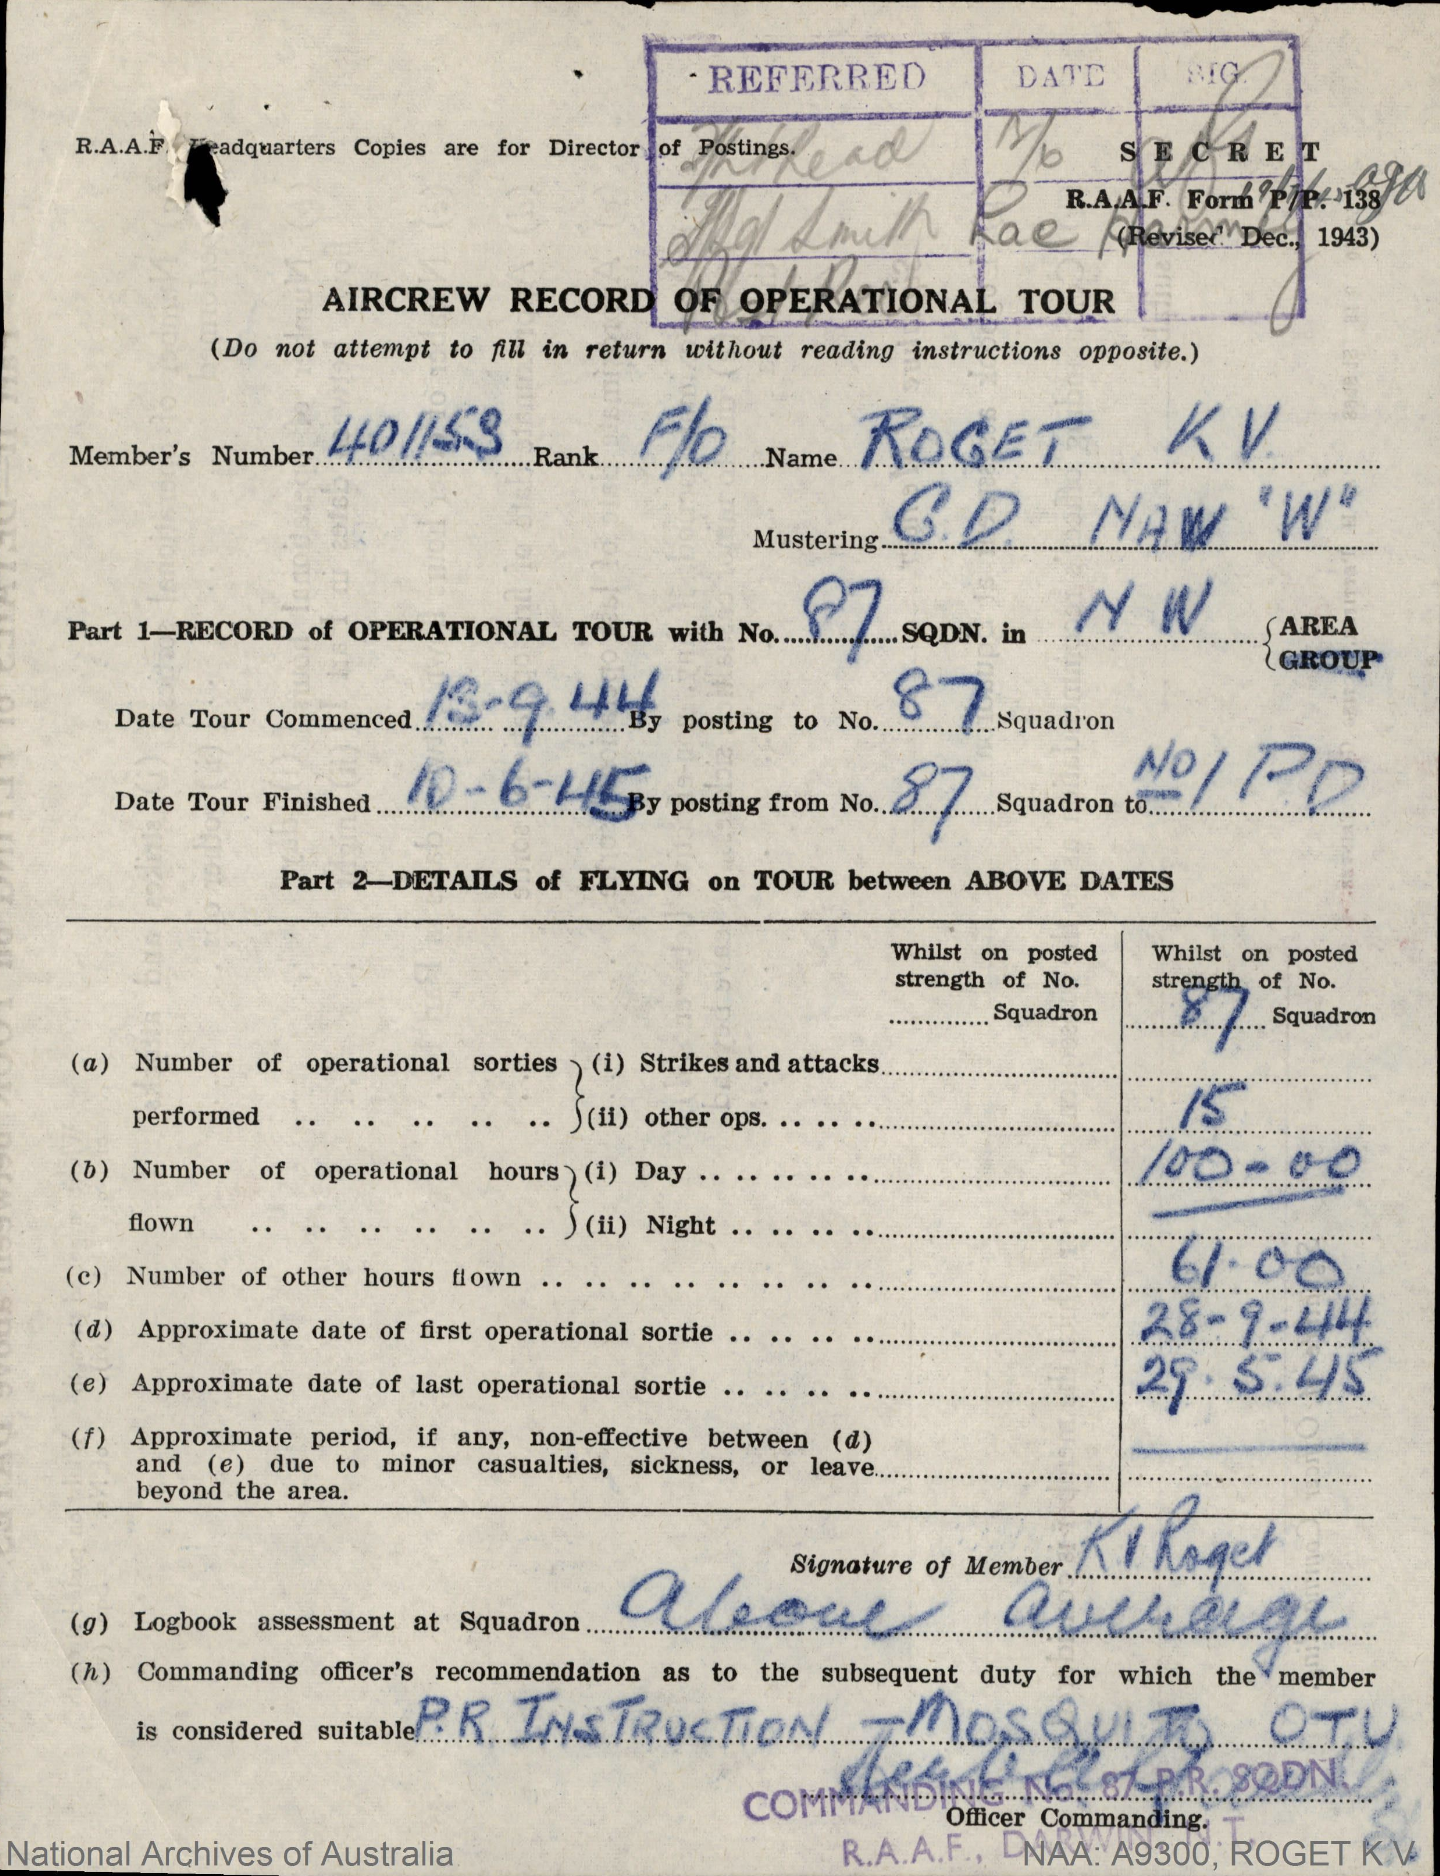 REFERRED DATE SIG.
R.A.A.F. Headquarters Copies are for Director of Postings.
SECRET
R.A.A.F. Form P/P. 138
Smith
(Revised Dec., 1943)
AIRCREW RECORD OF OPERATIONAL TOUR
(Do not attempt to fill in return without reading instructions opposite.)
Member's Number 401153 Rank F/O Name ROGET K V.
Mustering G.D. NAW "W"
Part 1—RECORD of OPERATIONAL TOUR with No. 87 SQDN. in N W AREA
GROUP
Date Tour Commenced 13-9-44 By posting to No. 87 Squadron
Date Tour Finished 10-6-45 By posting from No. 87 Squadron to No 1 P.D
Part 2—DETAILS of FLYING on TOUR between ABOVE DATES
Whilst on posted strength of No. ............ Squadron
Whilst on posted strength of No. 87 Squadron
(a) Number of operational sorties (i) Strikes and attacks
performed .. .. .. .. .. (ii) other ops. .. .. .. 15
(b) Number of operational hours (i) Day .. .. .. .. .. 100-00
flown .. .. .. .. .. .. (ii) Night .. .. .. ..
(c) Number of other hours flown .. .. .. .. .. .. .. .. 61.00
(d) Approximate date of first operational sortie .. .. .. .. 28-9-44
(e) Approximate date of last operational sortie .. .. .. .. 29.5.45
(f) Approximate period, if any, non-effective between (d)
and (e) due to minor casualties, sickness, or leave
beyond the area.
Signature of Member K V Roget
(g) Logbook assessment at Squadron Above average
(h) Commanding officer's recommendation as to the subsequent duty for which the member
is considered suitable P.R INSTRUCTION - MOSQUITO OTU.
COMMANDING No. 87 P.R. SQDN.
Officer Commanding.
R.A.A.F., DARWIN, N.T.
National Archives of Australia NAA: A9300, ROGET K V